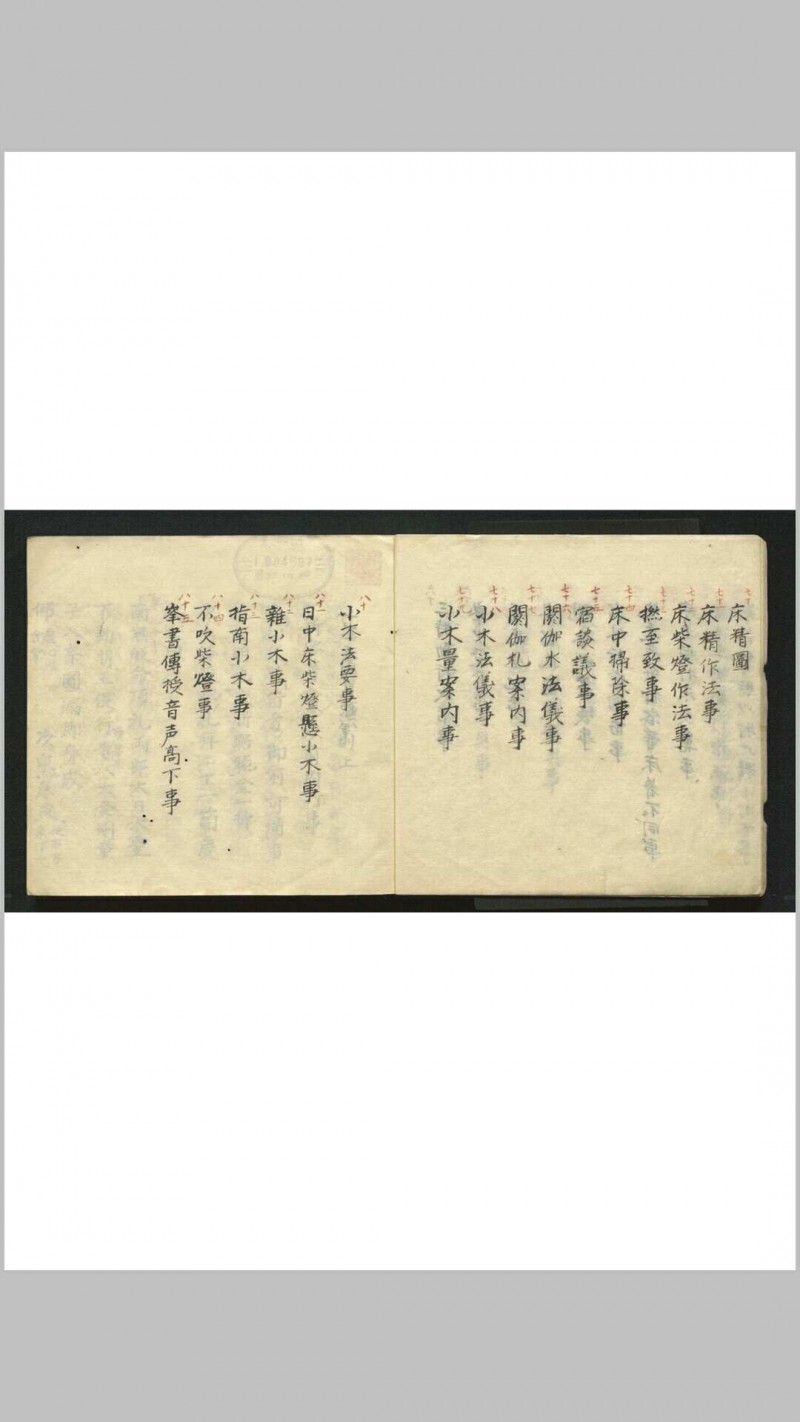 七十 床精圖
七十一 床精作法事
七十二 床柴燈作法事
七十三 撫至致事
七十四 床中掃除事
七十五 宿談議事
七十六 閼伽水法儀事
七十七 閼伽札案内事
七十八 小木法儀事
七十九 小木量案内事
八十 小木法要事
八十一 日中床柴燈懸小木事
八十二 雜小木事
八十三 指南小木事
八十四 不吹柴燈事
八十五 峯書傳授音声高下事